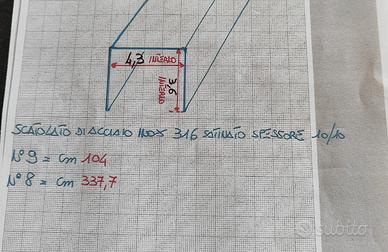 4,3 INTERNO
3,6
INTERNO
SCATOLATO DI ACCIAIO INOX 316 SATINATO SPESSORE 10/10
N° 9 = cm 104
N° 8 = cm 337,7
subito